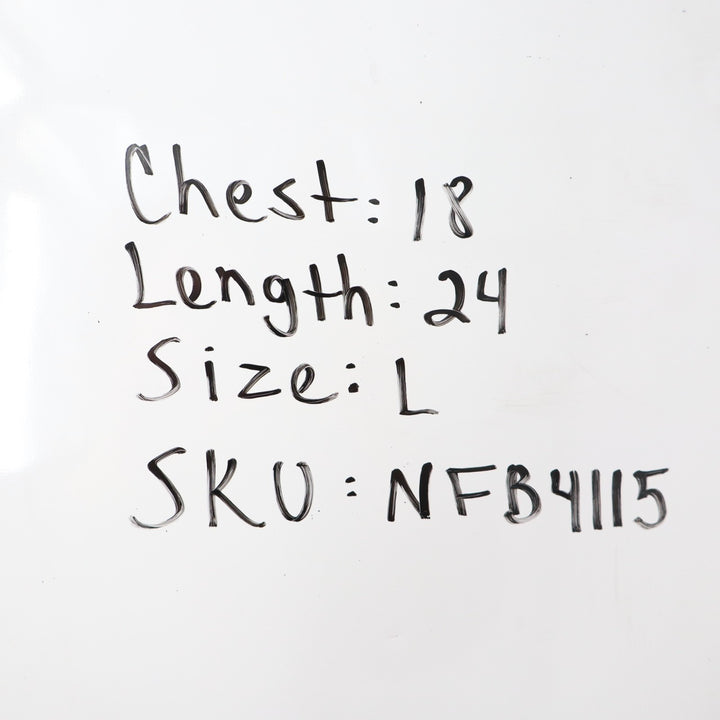 Chest: 18
Length: 24
Size: L
SKU: NFB4115